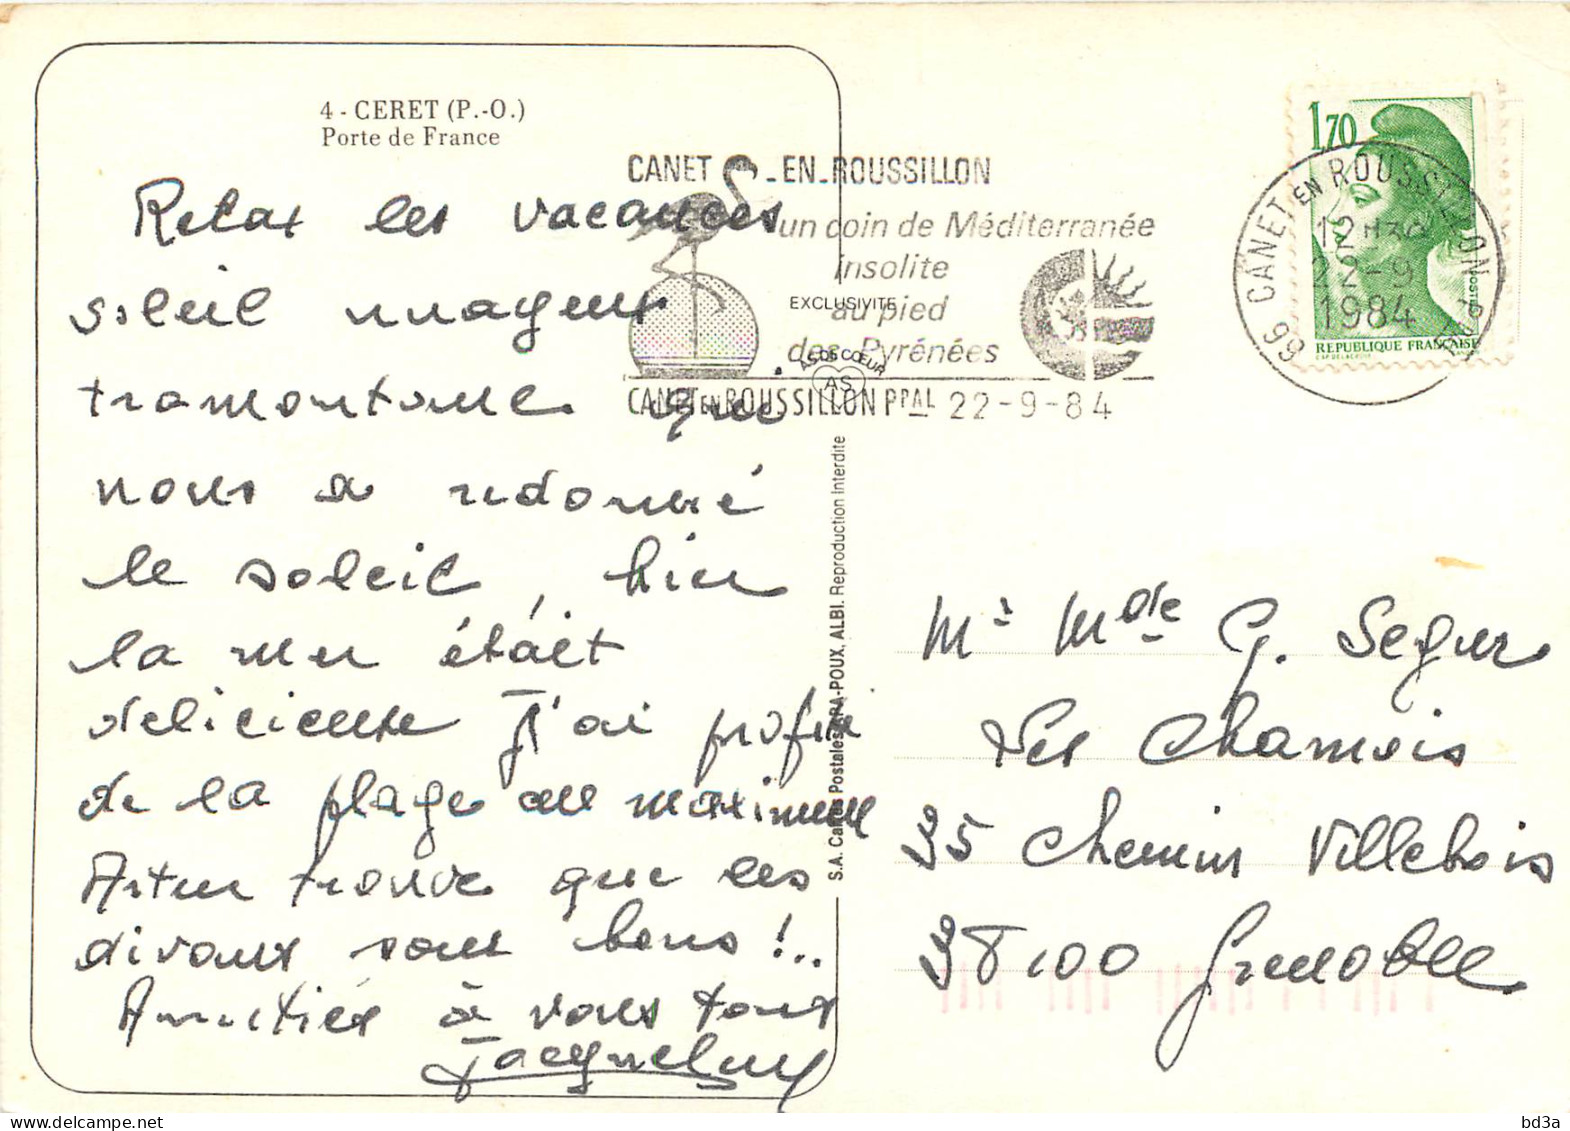 4 - CERET (P.-O.)
Porte de France
Relax les vacances
soleil nuageux
tramontane que
nous a redonné
le soleil, hier
la mer était
delicieuse J'ai profité
de la plage au maximum
Artur trouve que les
divans sont bons !..
Amitiés à vous tous
Jacqueline
CANET - EN - ROUSSILLON
un coin de Méditerranée
insolite
au pied
des Pyrénées
CANET EN ROUSSILLON PPAL 22-9-84
EXCLUSIVITE
AS DE CŒUR
AS
S.A. Cartes Postales APA-POUX, ALBI. Reproduction Interdite
1,70
POSTES
REPUBLIQUE FRANÇAISE
66 CANET EN ROUSSILLON PPAL
12H30
22-9
1984
Mr Mme G. Segur
Les Chamois
35 Chemin Villebois
38100 Grenoble
bd3a